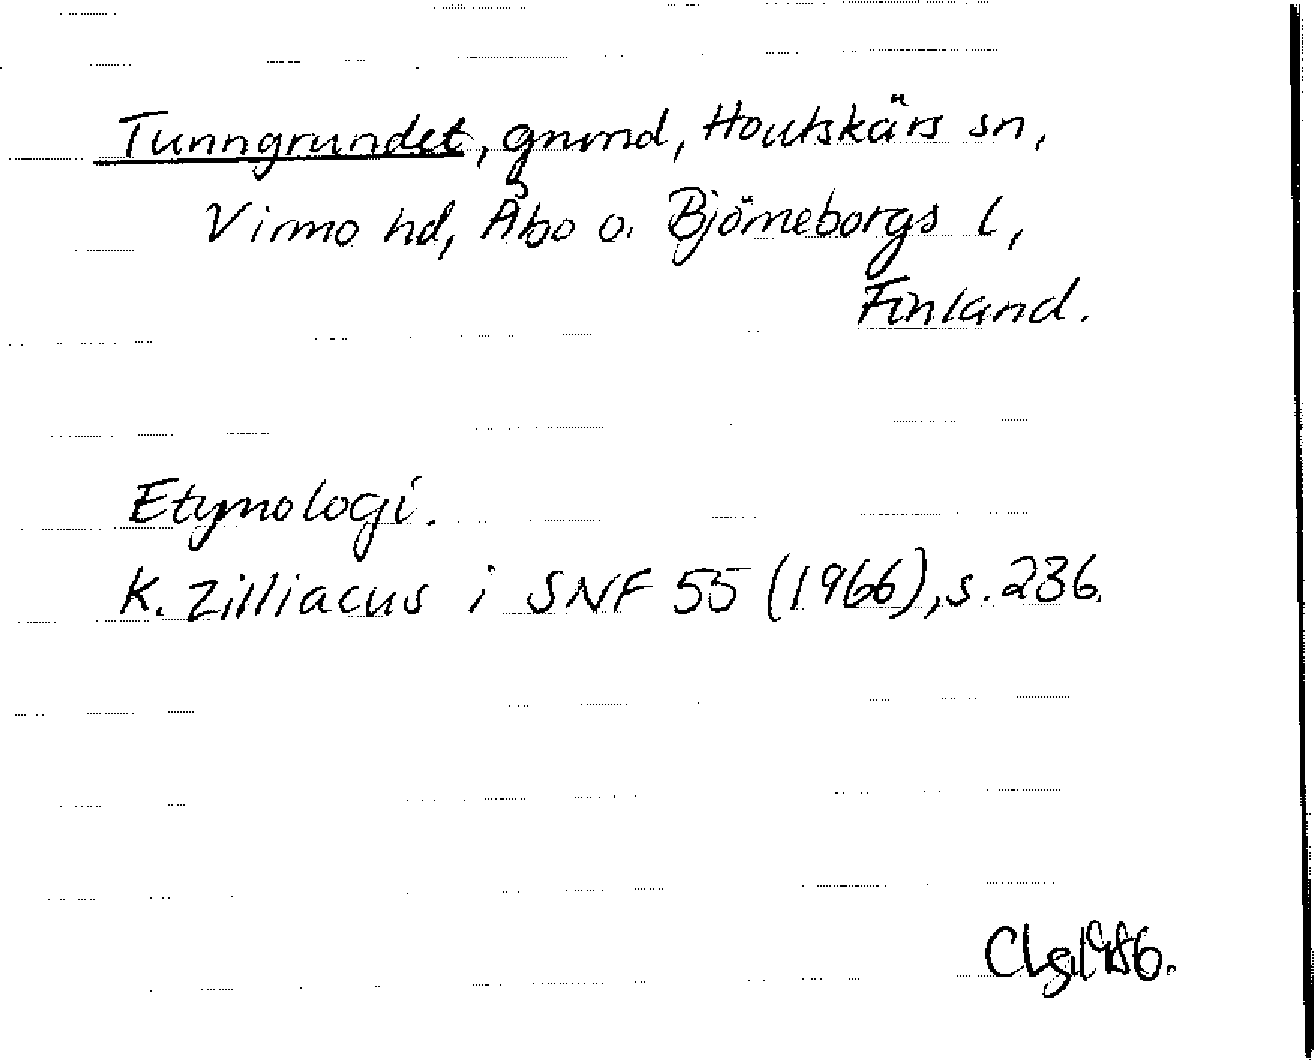 Tunngrundet, grund, Houtskärs sn,
Virmo hd, Åbo o. Björneborgs l,
Finland.
Etymologi.
K. Zilliacus i SNF 55 (1966), s. 236.
1986.